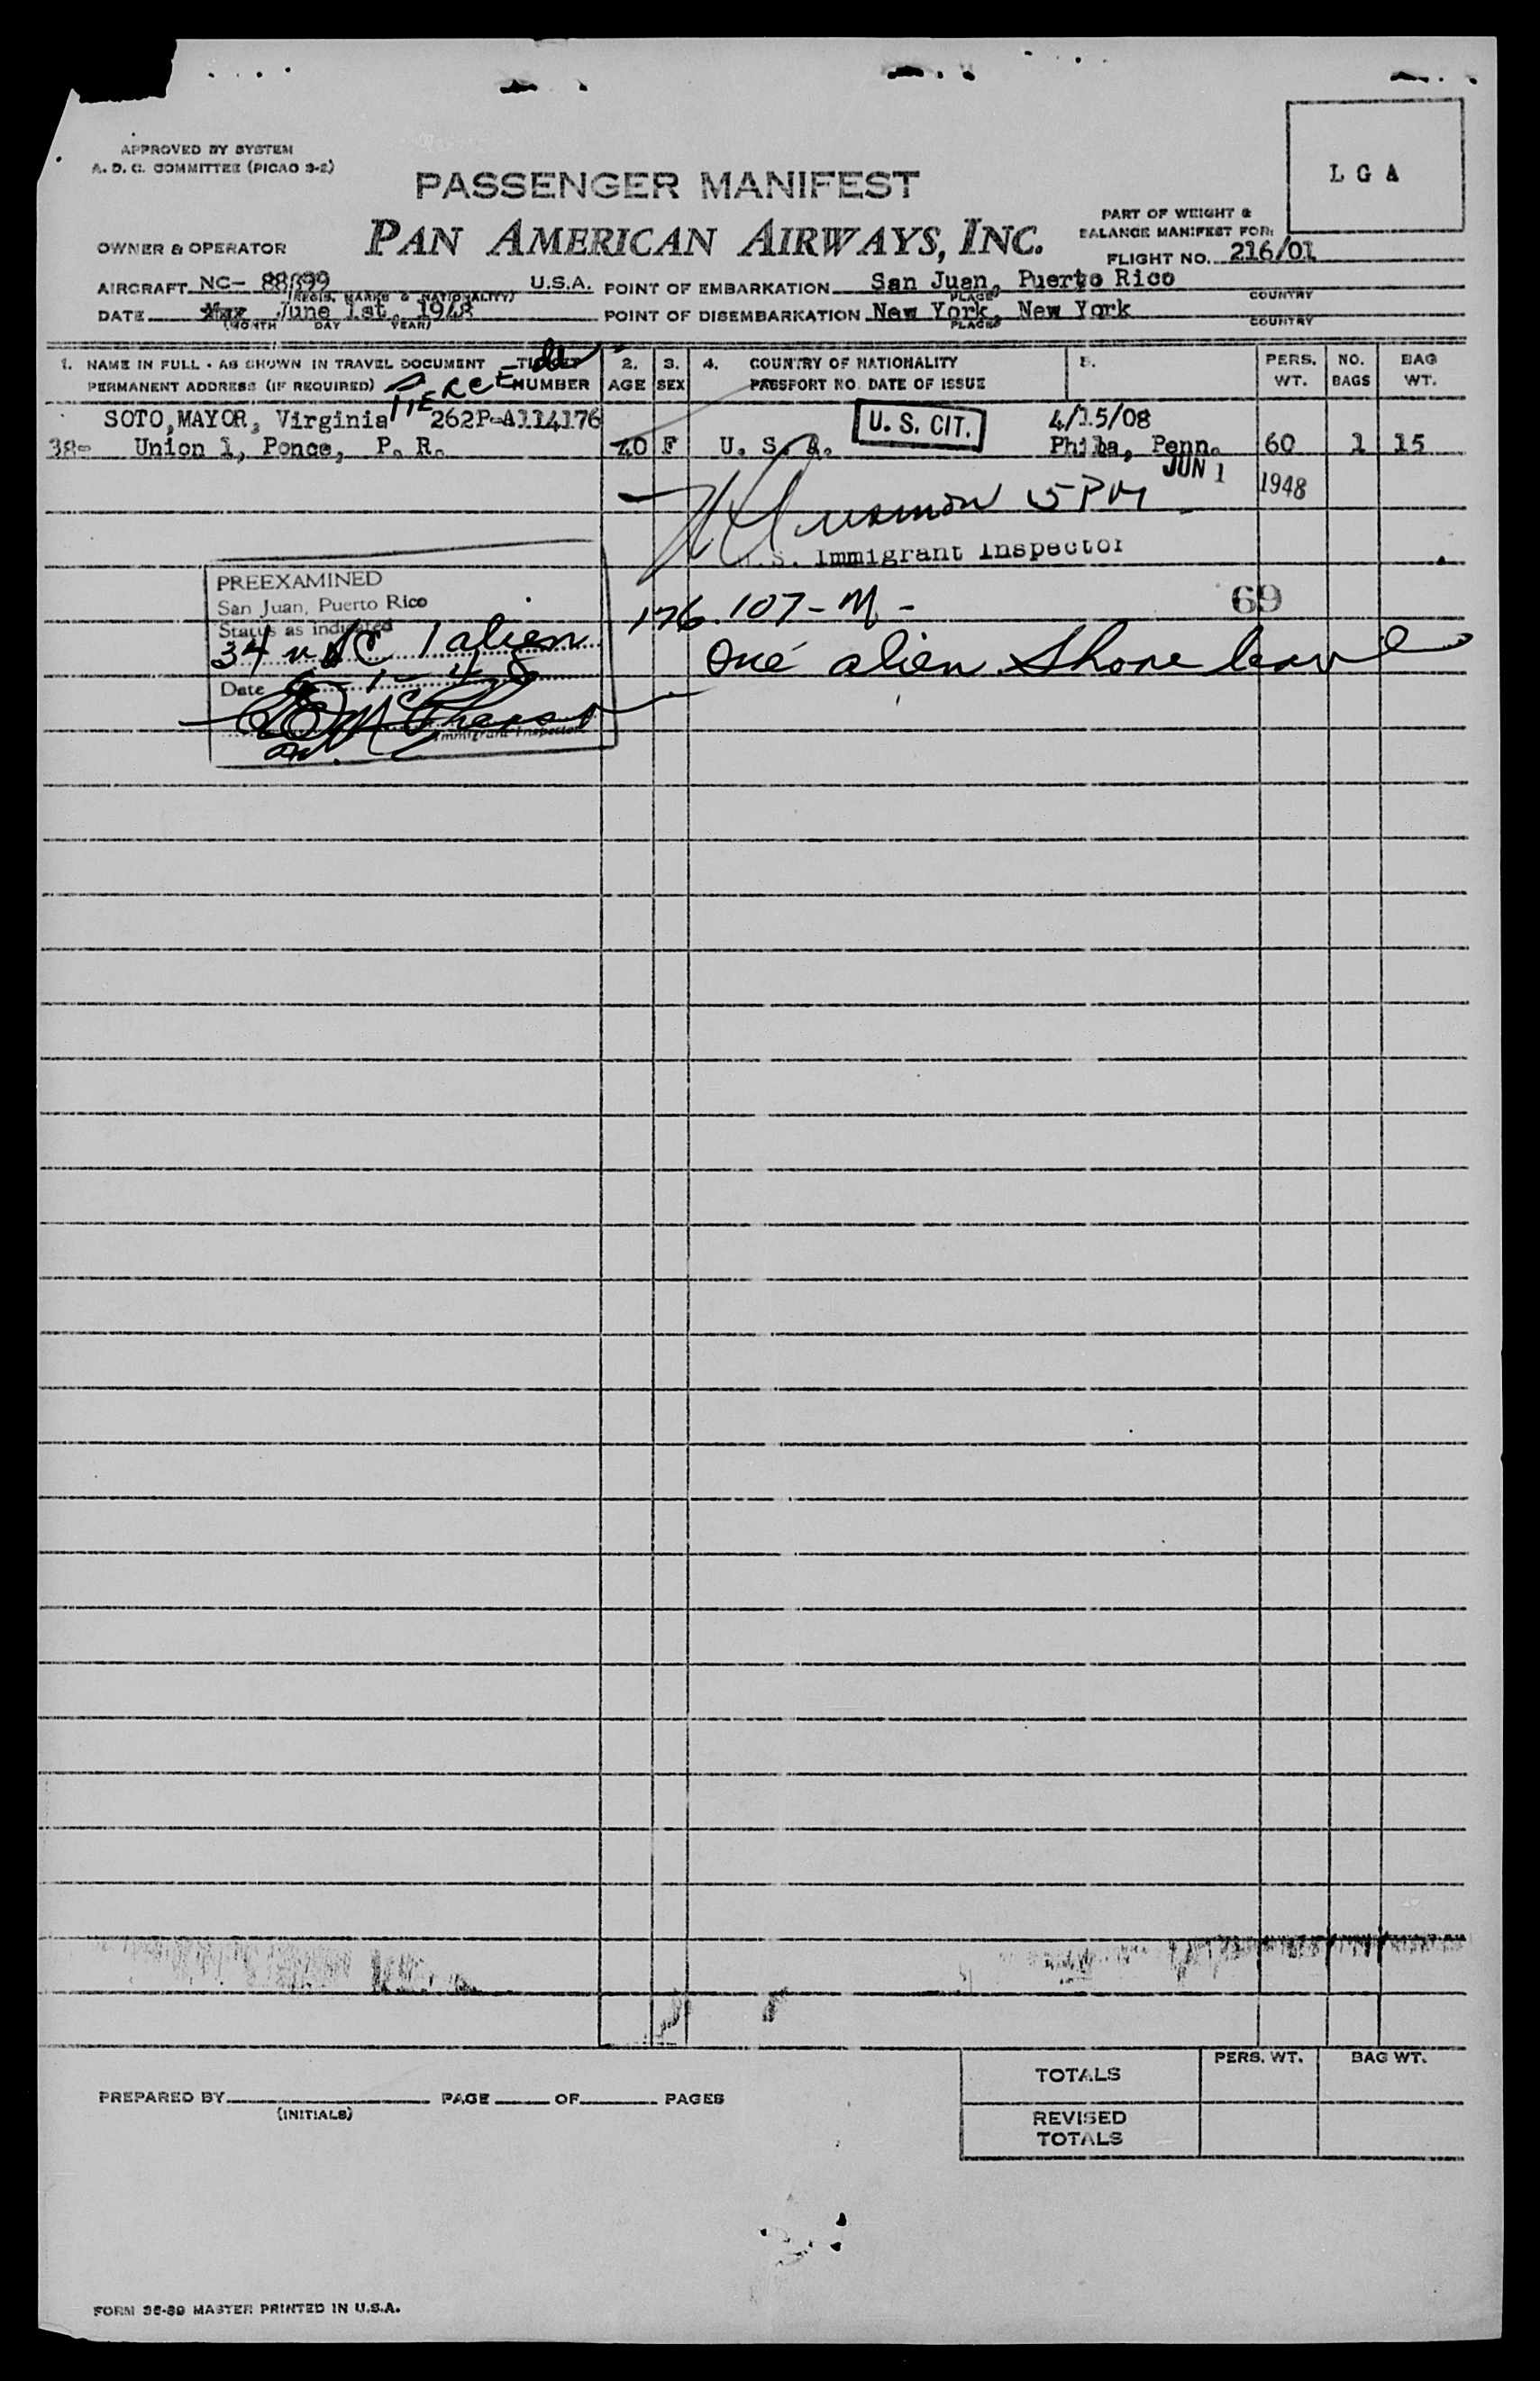 APPROVED BY SYSTEM
A. D. C. COMMITTEE (PICAO 3-2)
L G A
PASSENGER MANIFEST
PAN AMERICAN AIRWAYS, INC.
OWNER & OPERATOR
PART OF WEIGHT &
BALANCE MANIFEST FOR:
FLIGHT NO. 216/01
AIRCRAFT NC- 88899 U.S.A. POINT OF EMBARKATION San Juan, Puerto Rico
(REGIS. MARKS & NATIONALITY) PLACE COUNTRY
DATE June 1st, 1948 POINT OF DISEMBARKATION New York, New York
(MONTH DAY YEAR) PLACE COUNTRY
1. NAME IN FULL - AS SHOWN IN TRAVEL DOCUMENT TICKET 2. 3. 4. COUNTRY OF NATIONALITY 5. PERS. NO. BAG
PERMANENT ADDRESS (IF REQUIRED) NUMBER AGE SEX PASSPORT NO. DATE OF ISSUE WT. BAGS WT.
PIERCE
SOTO,MAYOR, Virginia 262P-A114176 U. S. CIT. 4/15/08
38- Union 1, Ponce, P. R. 40 F U. S. A. Phila, Penn. 60 1 15
JUN 1 1948
5 PM
U.S. Immigrant Inspector
PREEXAMINED
San Juan, Puerto Rico
Status as indicated
34 USC 1 alien
Date 6-1-48
Immigrant Inspector
176.107-M- 69
One alien shore leave
TOTALS PERS. WT. BAG WT.
PREPARED BY PAGE OF PAGES
(INITIALS)
REVISED
TOTALS
FORM 36-89 MASTER PRINTED IN U.S.A.